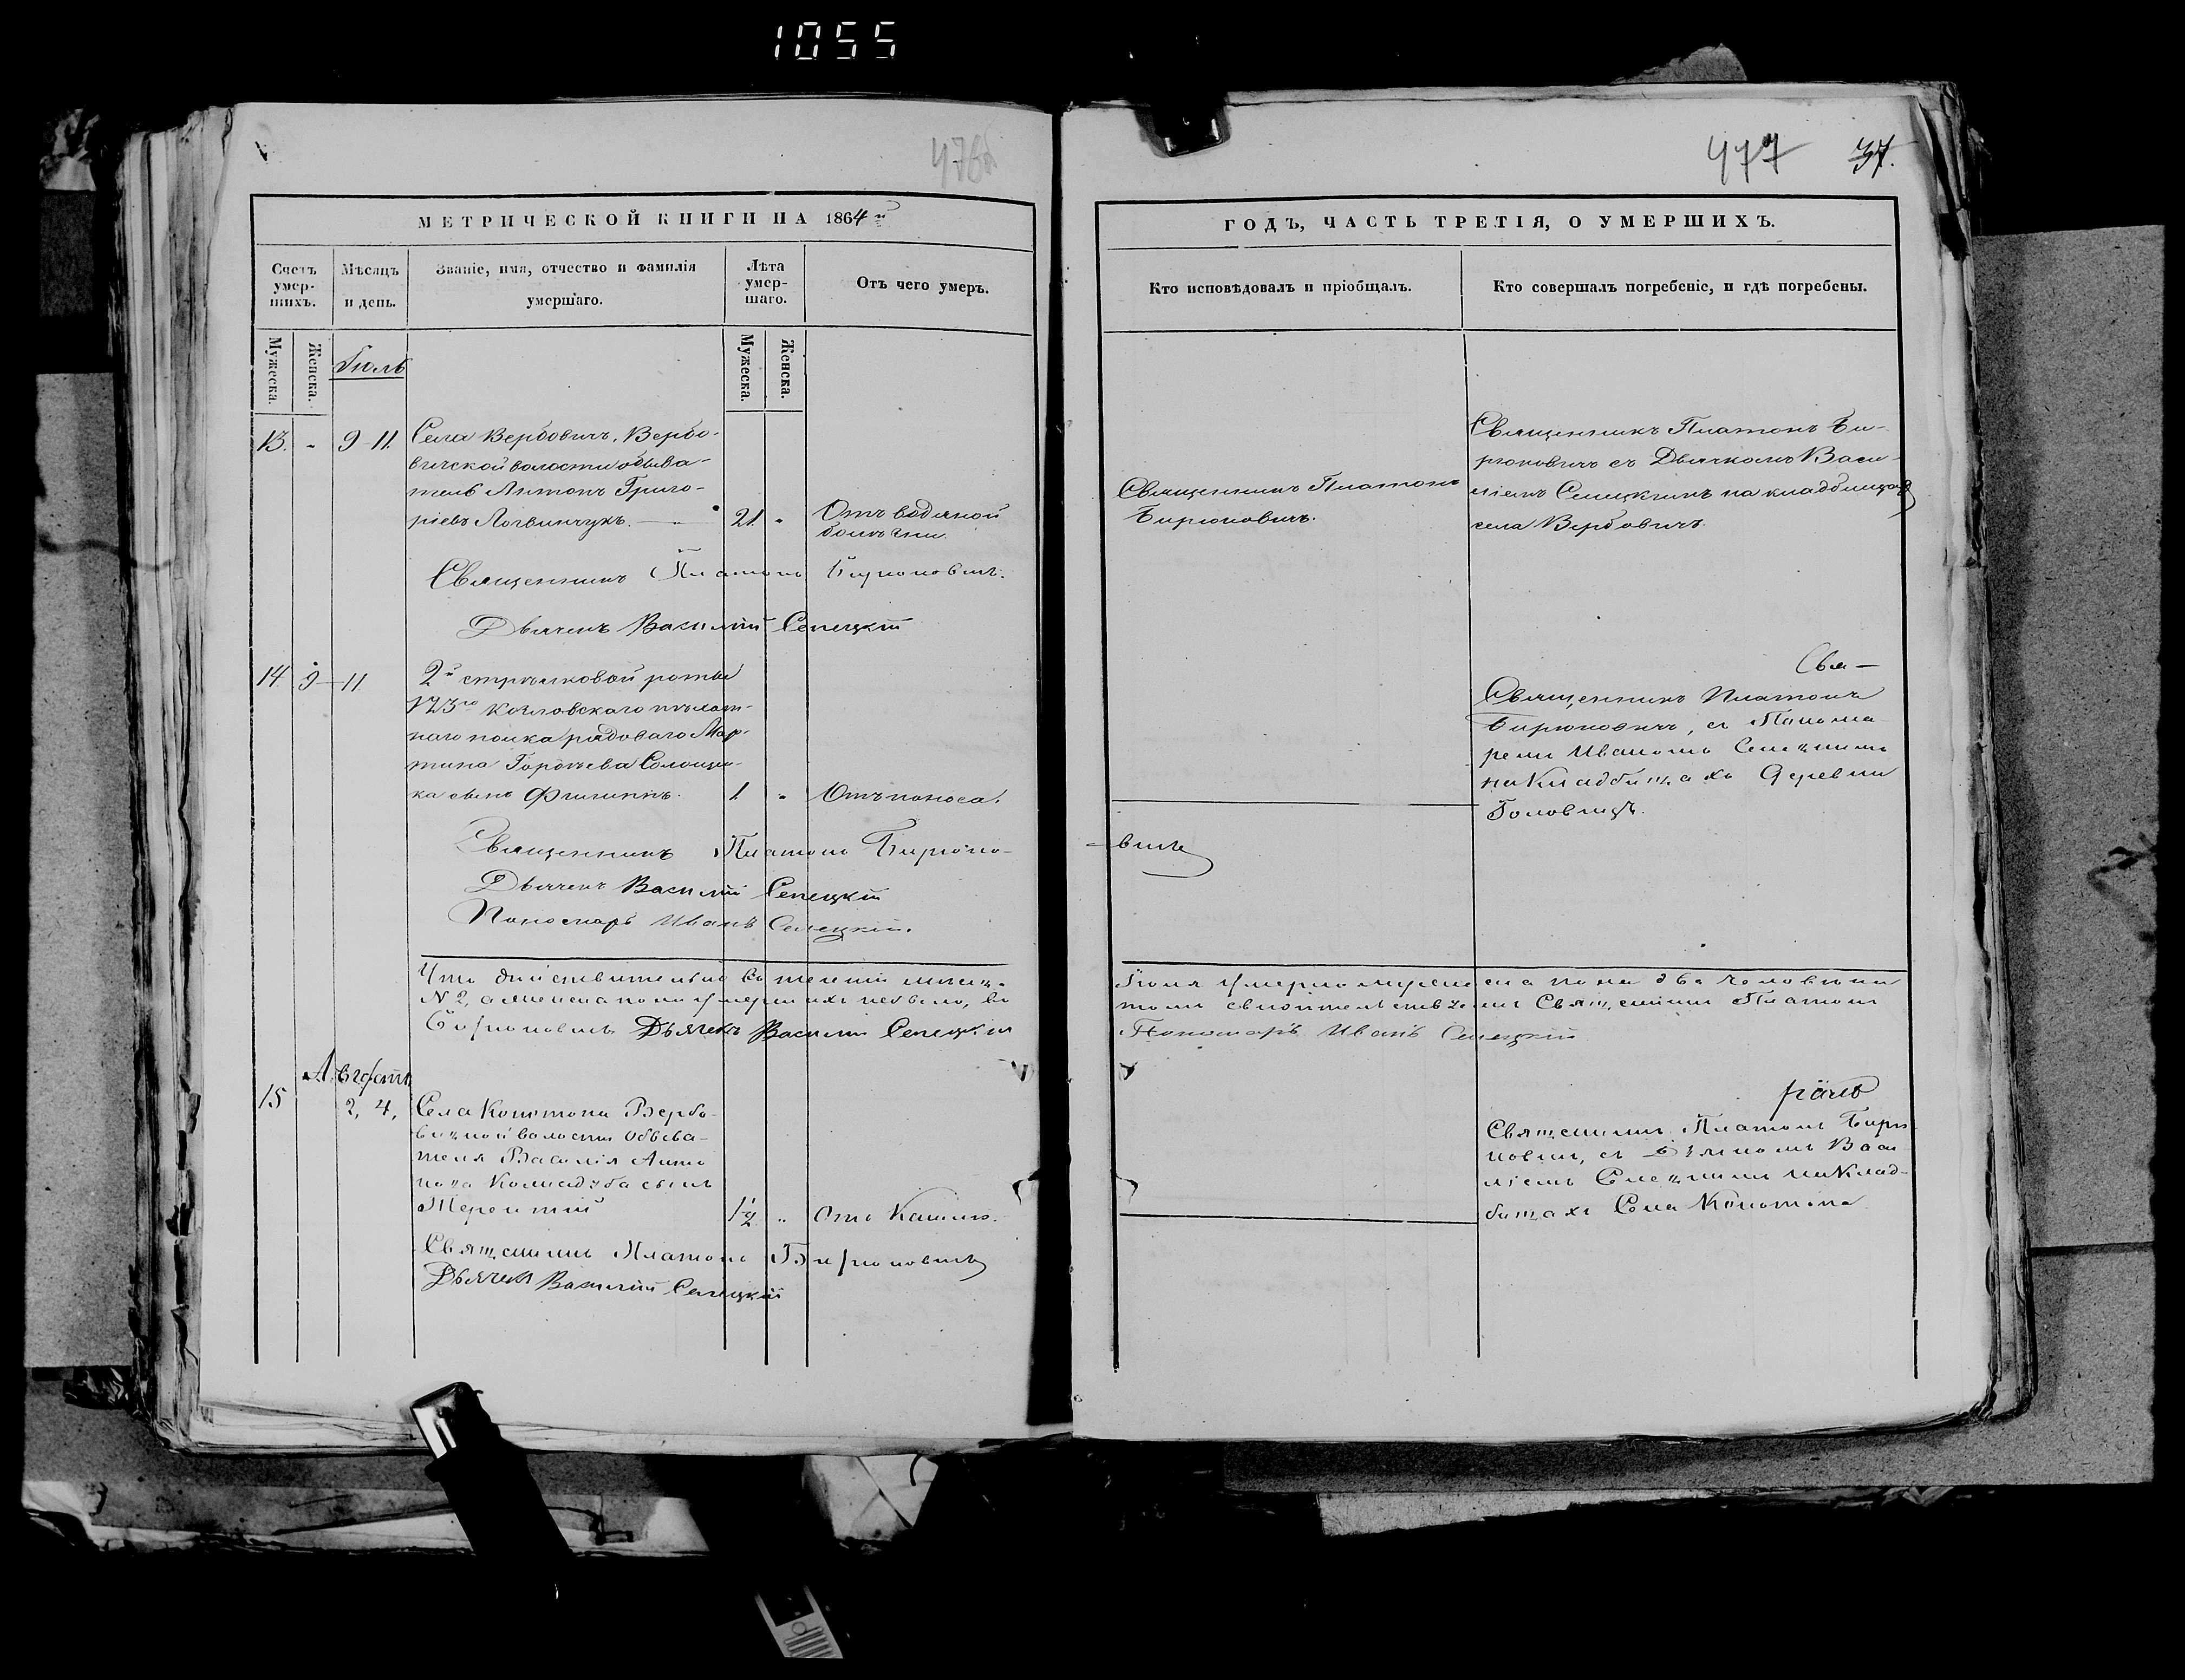 1055
476об
МЕТРИЧЕСКОЙ КНИГИ НА 1864й
Счетъ умер- шихъ.
Мѣсяцъ и день.
Званіе, имя, отчество и фамилія умершаго.
Лѣта умер- шаго.
Отъ чего умеръ.
Мужеска.
Женска.
Іюль
Мужеска.
Женска.
13. " 9-11. Села Вербовичъ, Вербо-
вичской волости обыва-
тель Антонъ Григо-
ріевъ Логвинчукъ. — " 21. " Отъ водяной
болѣзни.
Священникъ Платонъ Бирюковичъ.
Дьячекъ Василій Селецкій
14 9-11 2й стрѣлковой роты
123го Козловскаго пѣхот-
наго полка рядоваго Мар-
тина
ка сынъ Филиппъ. 1. " Отъ поноса.
Священникъ Платонъ Бирюко-
Дьячекъ Василій Селецкій
Пономарь Иванъ Селецкій.
Что дѣйствительно въ теченіи мѣсяц.
№ 2, а женска пола умершихъ небыло, въ
Бирюковичъ Дьячекъ Василій Селецкій
Августъ
15 2, 4, Села Конотопа Вербо-
вицкой волости Обыва-
теля Василія Анто
нова сынъ
Терентій 1/2 " Отъ Кашлю.
Священникъ Платонъ Бирюковичъ
Дьячекъ Василій Селецкій
477 37.
ГОДЪ, ЧАСТЬ ТРЕТІЯ, О УМЕРШИХЪ.
Кто исповѣдовалъ и пріобщалъ.
Кто совершалъ погребеніе, и гдѣ погребены.
Священникъ Платонъ
Бирюковичъ.
Священникъ Платонъ Би-
рюковичъ съ Дьячкомъ Васи-
ліемъ Селецкимъ на кладбищахъ
села Вербовичъ
Свя-
Священникъ Платонъ
Бирюковичъ, съ Понома
ремъ Иваномъ Селецкимъ
на Кладбищахъ Деревни
Головицъ.
-вичъ
Іюля умерло мужеска пола два человѣка
томъ свидѣтельствуемъ Священникъ Платонъ
Пономарь Иванъ Селецкій
Священникъ Платонъ Бирю
ковичъ, съ Дьячкомъ Васи
ліемъ Селецкимъ на Клад-
бищахъ Села Конотопа